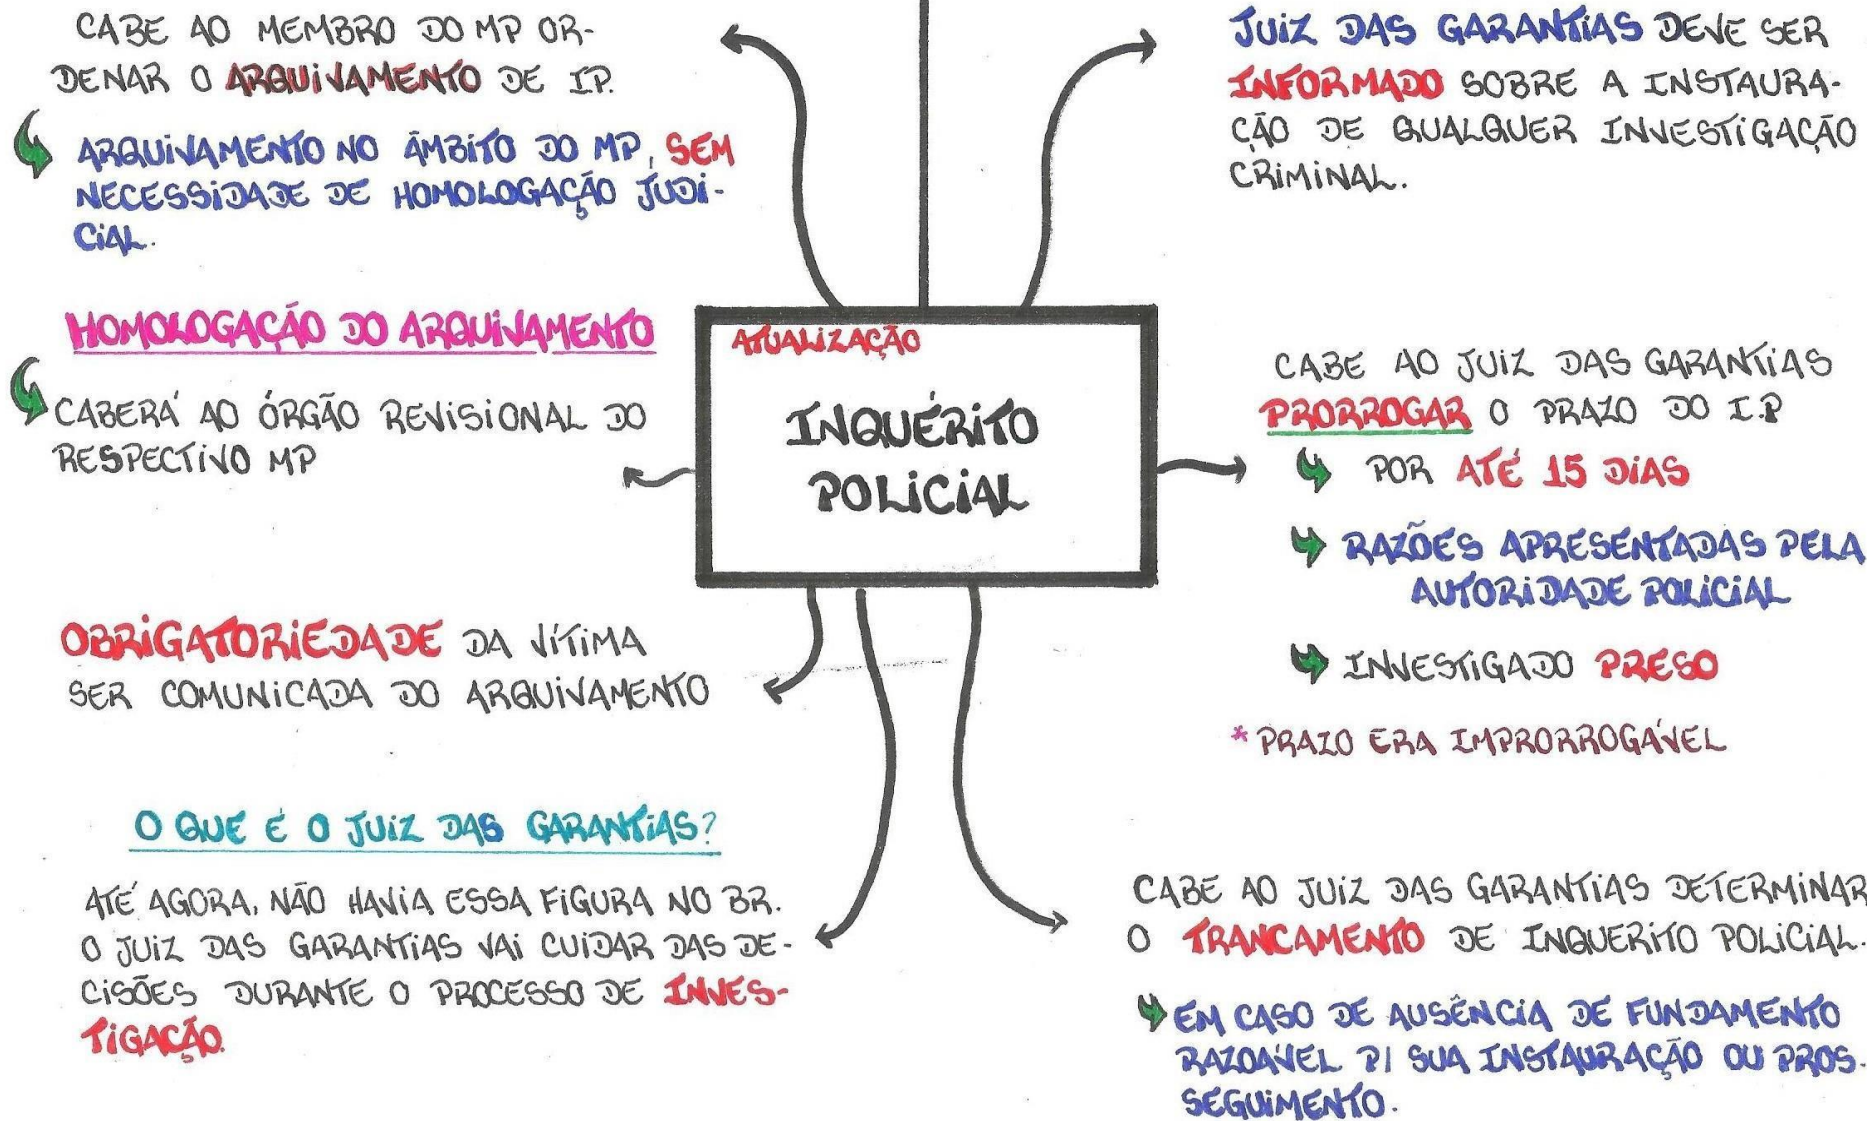 CABE AO MEMBRO DO MP OR-
DENAR O ARQUIVAMENTO DE IP.
ARQUIVAMENTO NO ÂMBITO DO MP, SEM
NECESSIDADE DE HOMOLOGAÇÃO JUDI-
CIAL.
HOMOLOGAÇÃO DO ARQUIVAMENTO
CABERÁ AO ÓRGÃO REVISIONAL DO
RESPECTIVO MP
OBRIGATORIEDADE DA VÍTIMA
SER COMUNICADA DO ARQUIVAMENTO
O QUE É O JUIZ DAS GARANTIAS?
ATÉ AGORA, NÃO HAVIA ESSA FIGURA NO BR.
O JUIZ DAS GARANTIAS VAI CUIDAR DAS DE-
CISÕES DURANTE O PROCESSO DE INVES-
TIGAÇÃO.
ATUALIZAÇÃO
INQUÉRITO
POLICIAL
JUIZ DAS GARANTIAS DEVE SER
INFORMADO SOBRE A INSTAURA-
ÇÃO DE QUALQUER INVESTIGAÇÃO
CRIMINAL.
CABE AO JUIZ DAS GARANTIAS
PRORROGAR O PRAZO DO I.P
POR ATÉ 15 DIAS
RAZÕES APRESENTADAS PELA
AUTORIDADE POLICIAL
INVESTIGADO PRESO
* PRAZO ERA IMPRORROGÁVEL
CABE AO JUIZ DAS GARANTIAS DETERMINAR
O TRANCAMENTO DE INQUERITO POLICIAL.
EM CASO DE AUSÊNCIA DE FUNDAMENTO
RAZOÁVEL P/ SUA INSTAURAÇÃO OU PROS-
SEGUIMENTO.